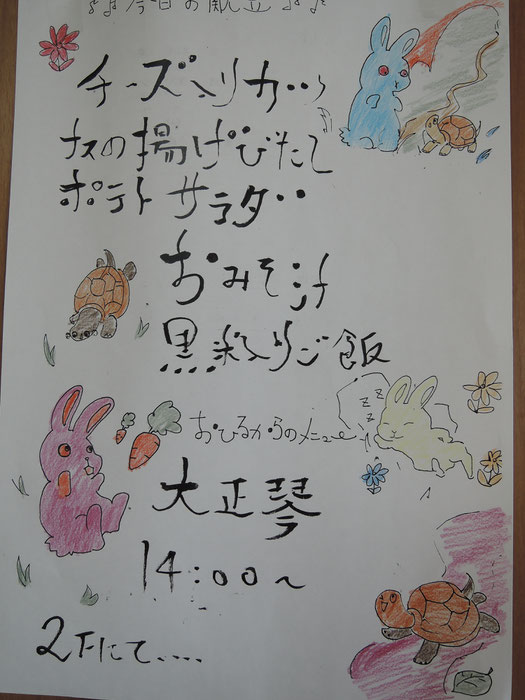 ♪♪今日の献立♪♪
チーズ入りカツ
ナスの揚げびたし
ポテトサラダ
おみそ汁
黒米入りご飯
zzz
おひるからのメニュー
大正琴
14:00〜
2Fにて....